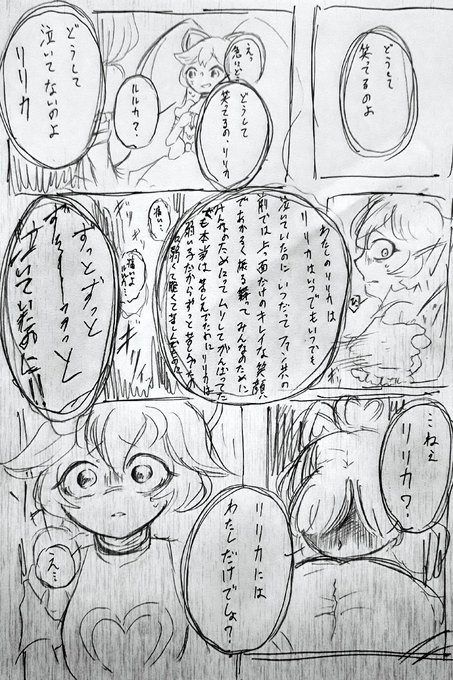 どうして
笑ってるのよ
えっ
急いど
どうして
笑ってるの、リリカ
ルルカ？
どうして
泣いてないのよ
リリカ
わたしのリリカは
リリカはいつでもいつでも
泣いていたのに いつだってファン共の
前では上っ面だけのキレイな笑顔
であかるく振る舞って みんなのために
みんなのためにってムリしてがんばってた
でも本当は苦しんでたわに リリカは
弱い子だからずっと
痛い…
痛いよ
ルルカ…
ギギ
ずっとずっと
泣いていたのに!!
ねえ
リリカ？
リリカには
わたしだけでしょ？
え…